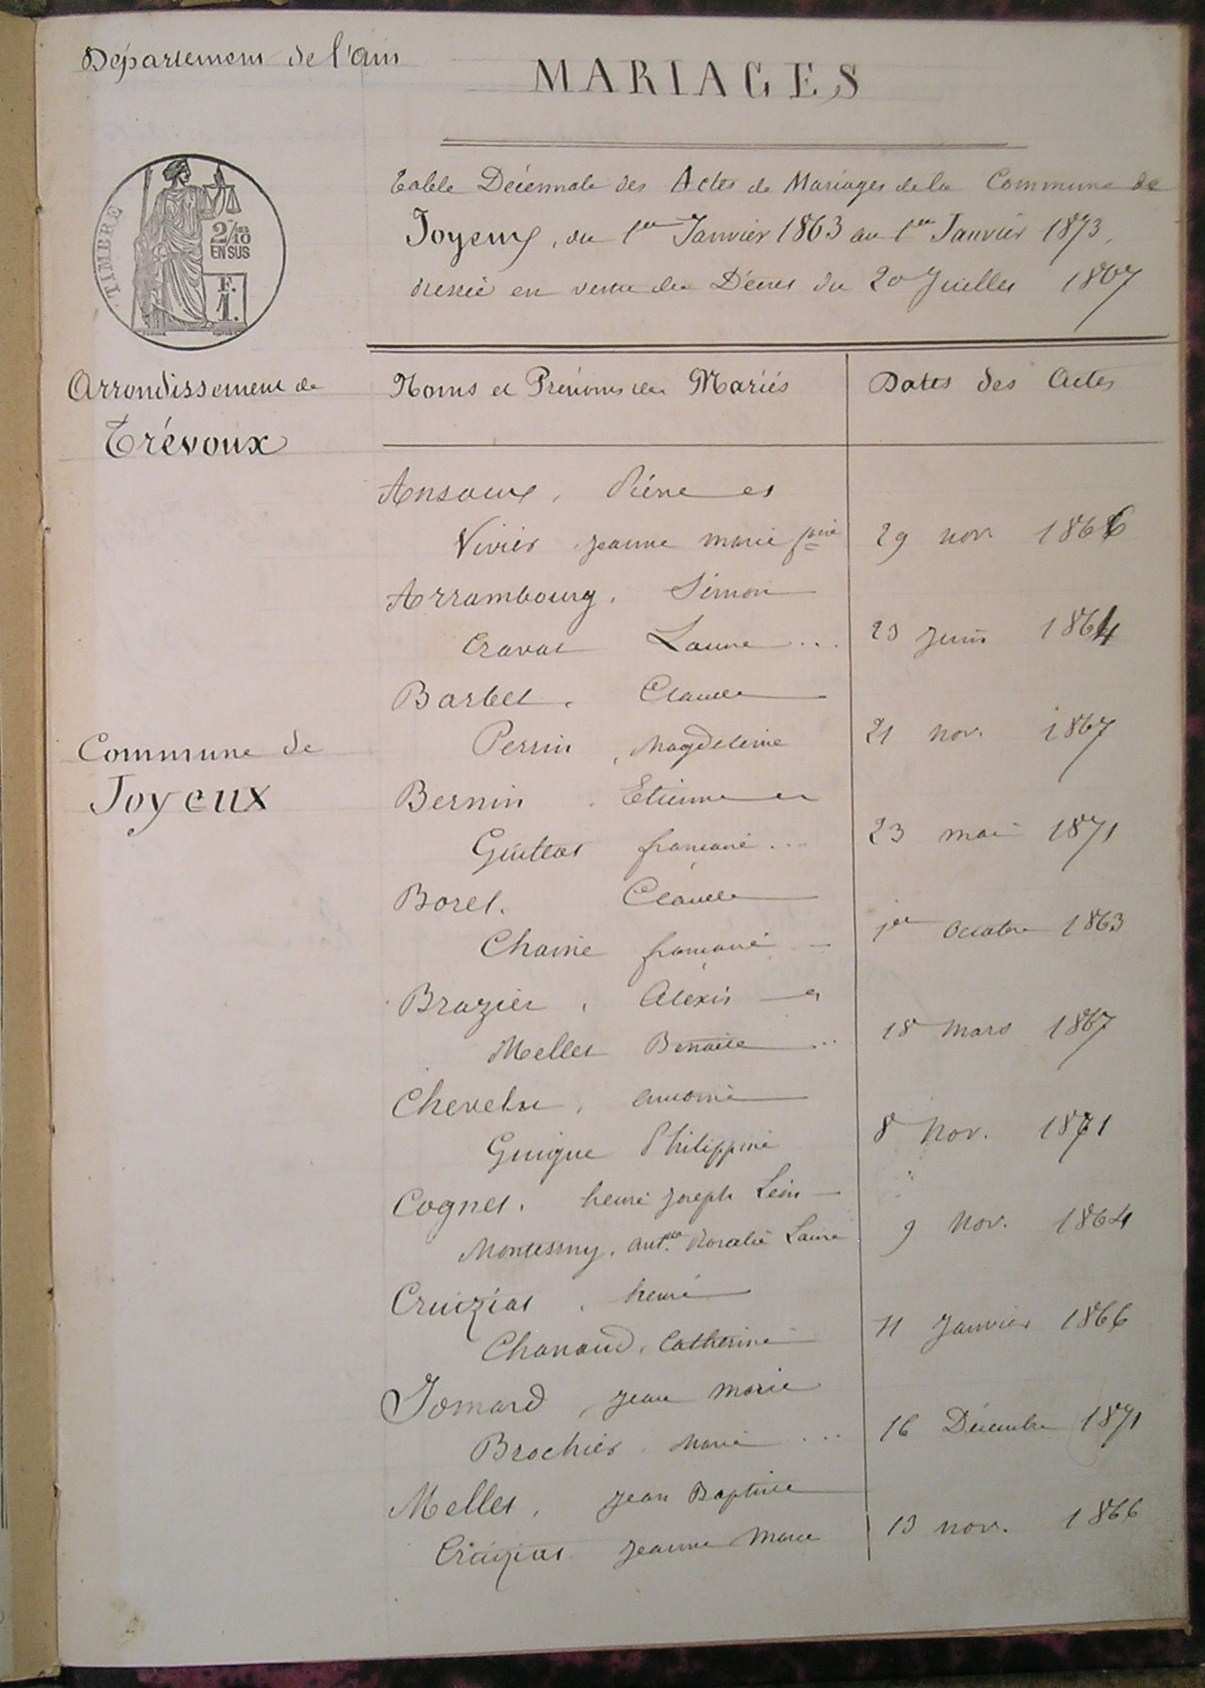 Département de l'ain
MARIAGES
Table Décennale des Actes de Mariages de la Commune de
Joyeux, du 1er Janvier 1863 au 1er Janvier 1873,
dressée en vertu du Décret du 20 Juillet 1807
TIMBRE
2/10
EN SUS
F.
1.
Arrondissement de
Trévoux
Noms et Prénoms des Mariés
Dates des Actes
Ansoux, Pierre et
Vivier jeanne marie
29 nov. 1866
Arrambourg, Simon
Cravat Laure ...
23 juin 1864
Barbet, Claude
Perrin, Magdeleine
21 nov. 1867
Commune de
Joyeux
Bernin, Etienne et
Guittat françoise ...
23 mai 1871
Borel, Claude
Chaine françoise
1er octobre 1863
Brazier, Alexis et
Mellet Benoite ...
18 mars 1867
Chevelu, antoine
Guigue Philippine
8 Nov. 1871
Cognet, henri joseph Léon
Montessuy, antte Rosalie Laure
9 Nov. 1864
Cruiziat, henri
Chanaud, Catherine
11 Janvier 1866
Jomard, jean marie
Brochier, Marie ...
16 Décembre 1871
Mellet, jean Baptiste
Cruiziat jeanne Marie
13 nov. 1866